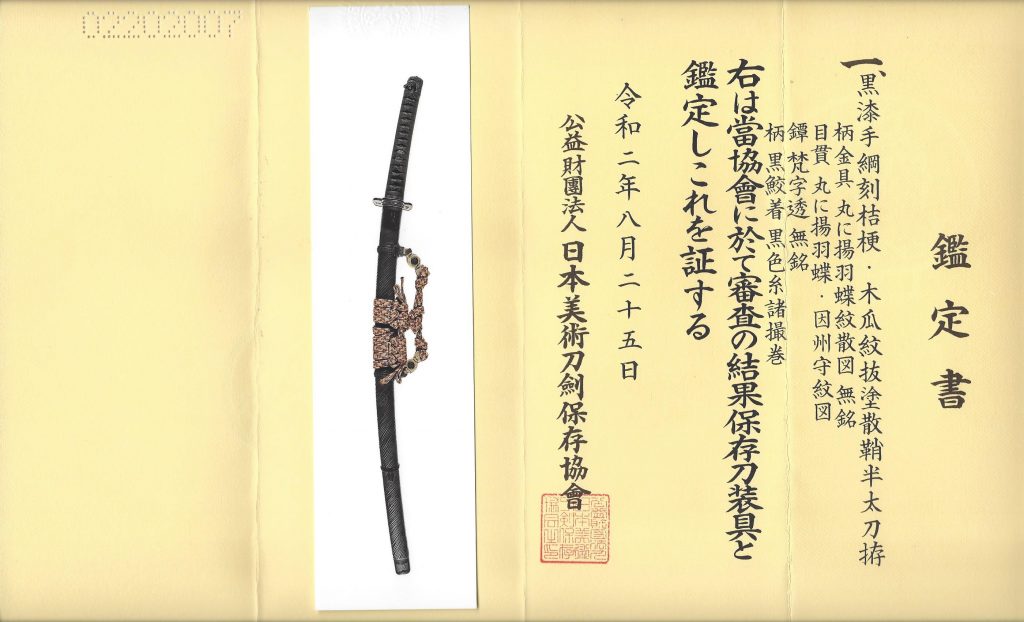 鑑定書
一、黒漆手綱刻桔梗・木瓜紋抜塗散鞘半太刀拵
柄金具 丸に揚羽蝶紋散図 無銘
目貫 丸に揚羽蝶・因州守紋図
鐔 梵字透 無銘
柄 黒鮫着 黒色糸諸撮巻
右は當協會に於て審査の結果保存刀装具と
鑑定しこれを証する
令和二年八月二十五日
公益財團法人 日本美術刀劍保存協會
02202007